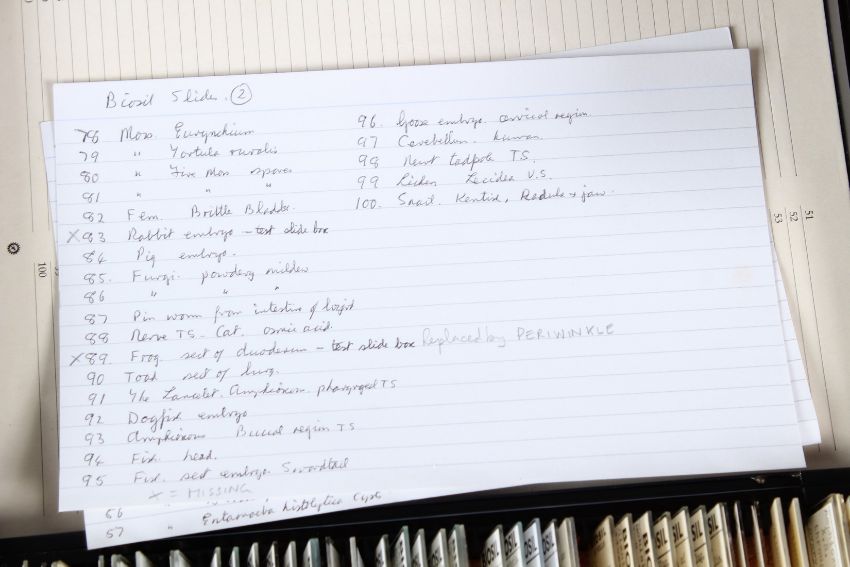 Biosil Slides. 2
78 Moss. Eurynchium
79 " Tortula ruralis
80 " Five Moss spores
81 " " "
82 Fern. Brittle Bladder.
X 83 Rabbit embryo - test slide box
84 Pig embryo.
85. Fungi. powdery mildew
86 " " "
87 Pin worm from intestine of
88 Nerve TS - Cat. osmic acid.
X 89. Frog sect of duodenum - test slide box Replaced by PERIWINKLE
90 Toad sect of lung.
91 The Lancelet. Amphioxus. pharyngeal TS
92 Dogfish embryo
93 Amphioxus Buccal region TS
94 Fish. head.
95 Fish. sect embryo. Swordtail
X = MISSING
96. Goose embryo. cervical region.
97 Cerebellum. human.
98 Newt tadpole T.S.
99 Lichen Lecidea V.S.
100. Snail. Kentish, Radula + jaw.
56
57 " Entamoeba histolytica Cysts
100
53
52
51